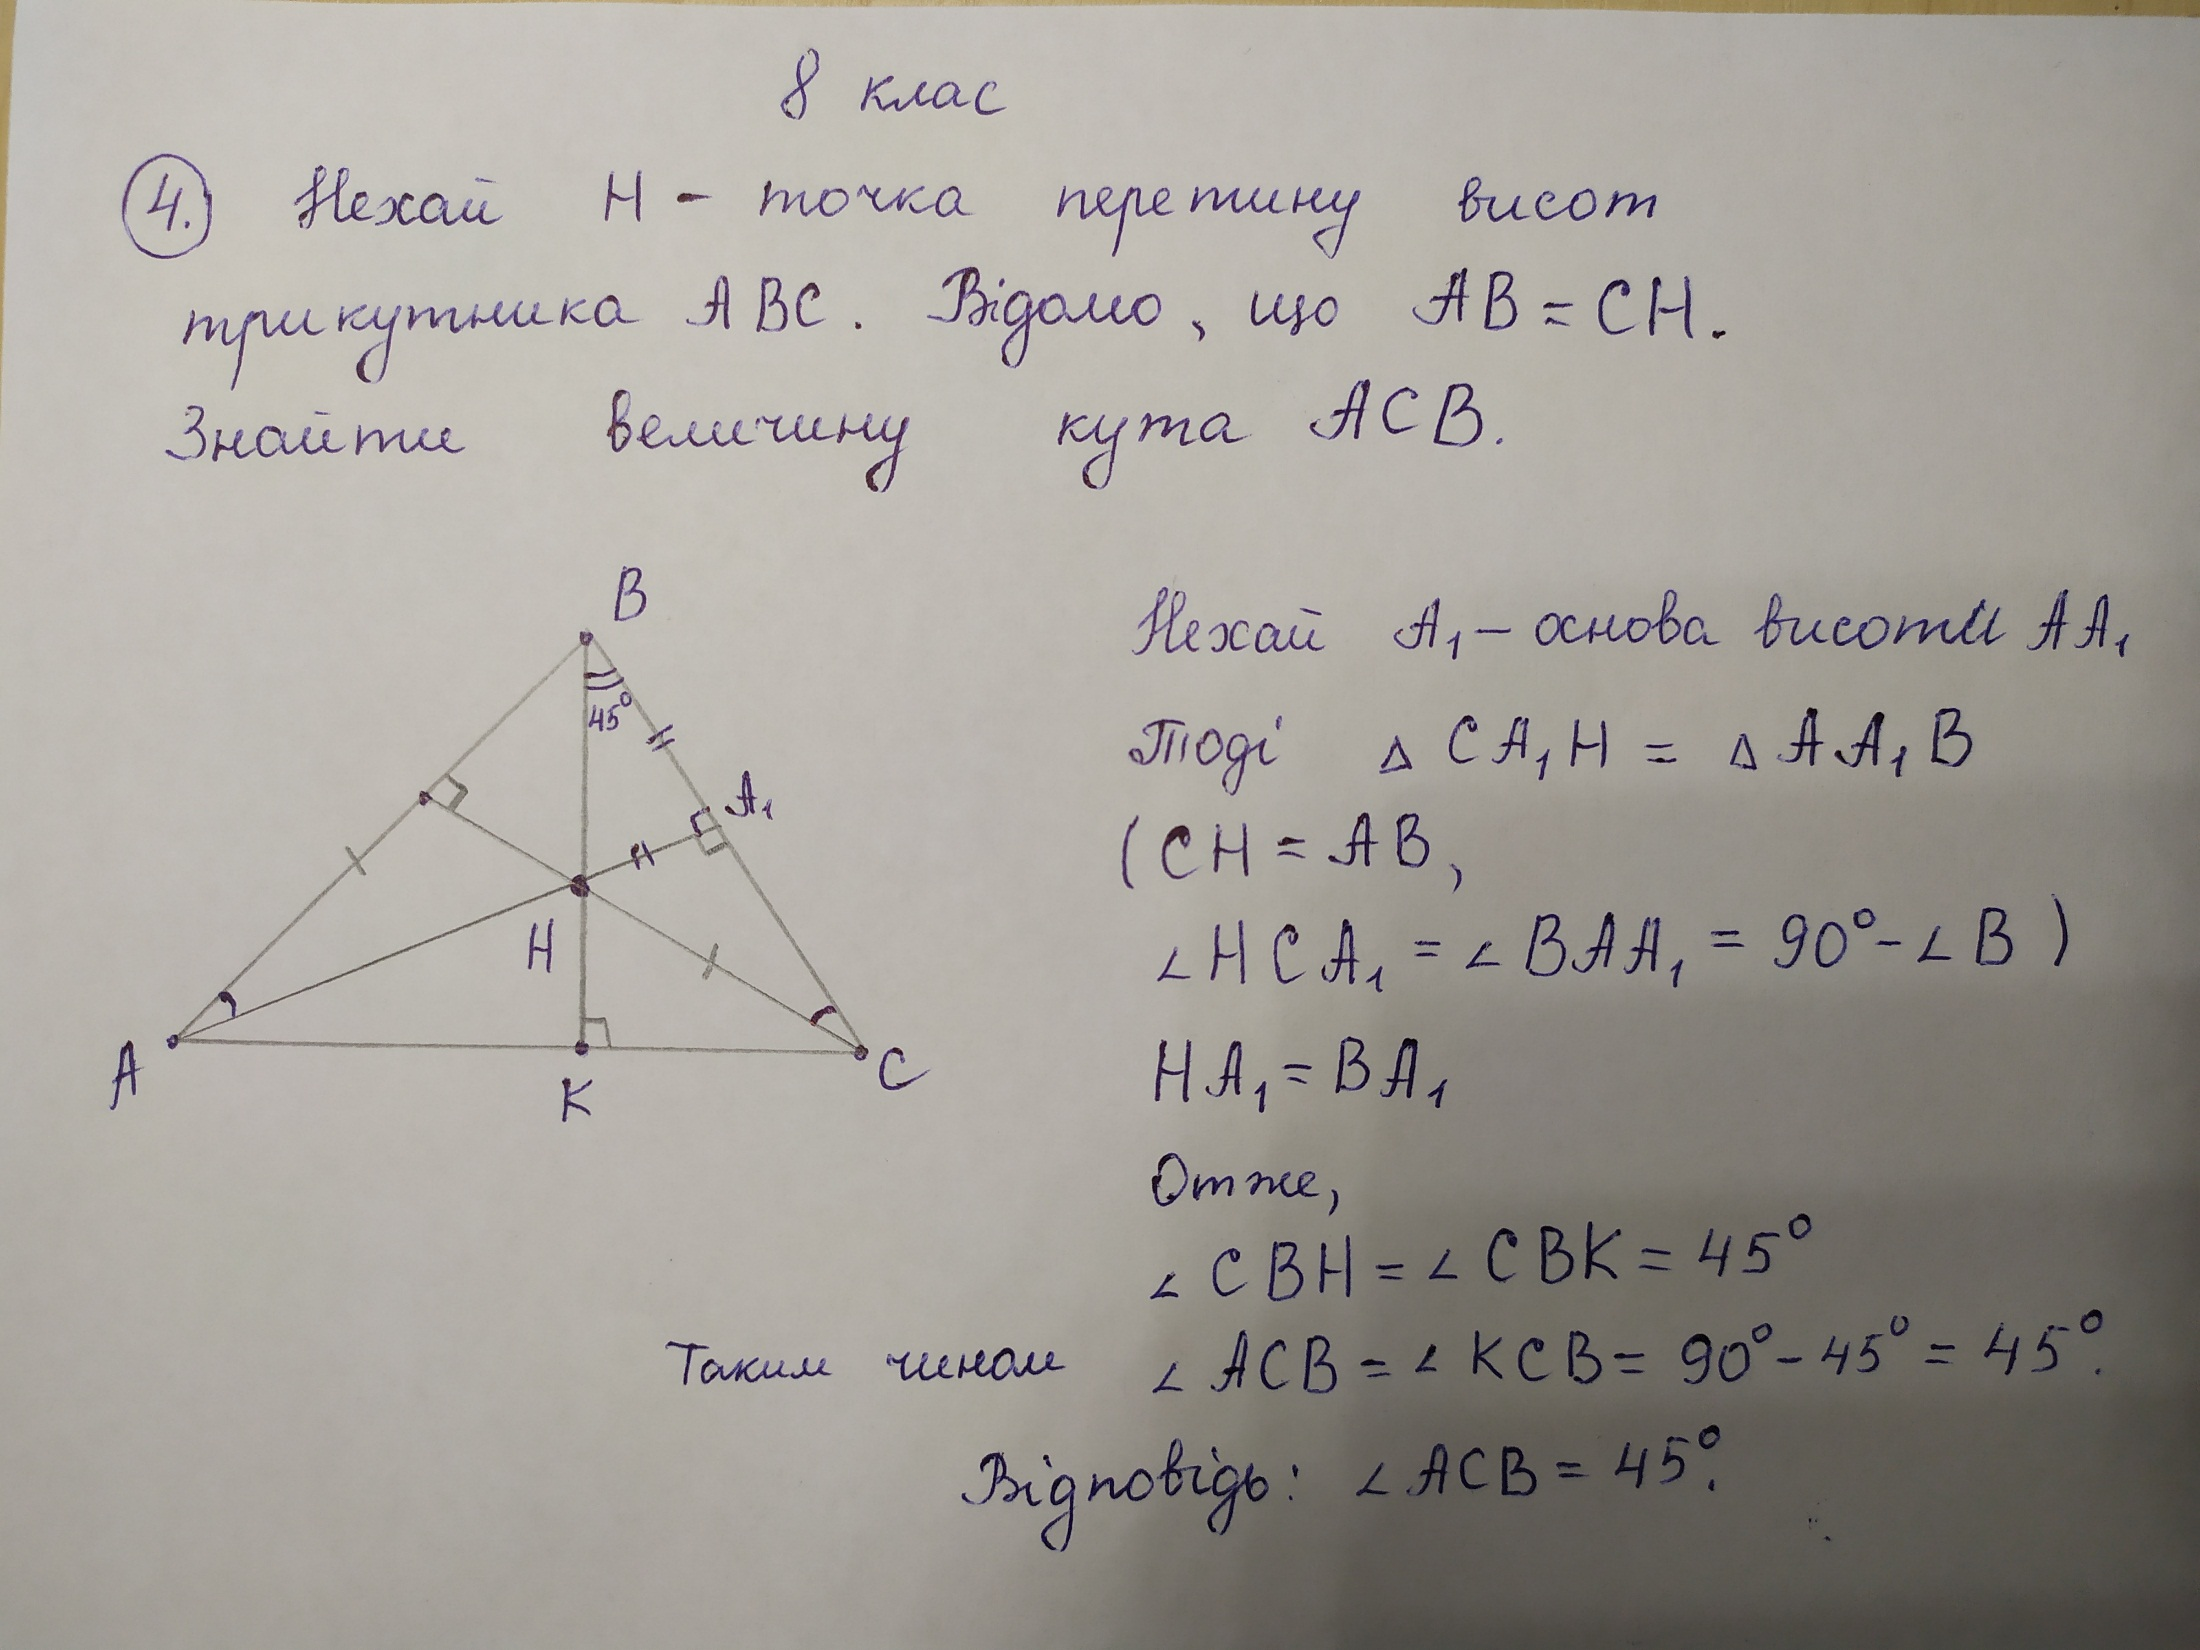 8 клас
4. Нехай H - точка перетину висот
трикутника ABC. Відомо, що AB = CH.
Знайти величину кута ACB.
B
45°
A₁
H
A
K
C
Нехай A₁ - основа висоти AA₁
Тоді △ CA₁H = △ AA₁B
(CH = AB,
∠HCA₁ = ∠BAA₁ = 90° - ∠B)
HA₁ = BA₁
Отже,
∠CBH = ∠CBK = 45°
Таким чином ∠ACB = ∠KCB = 90° - 45° = 45°.
Відповідь: ∠ACB = 45°.